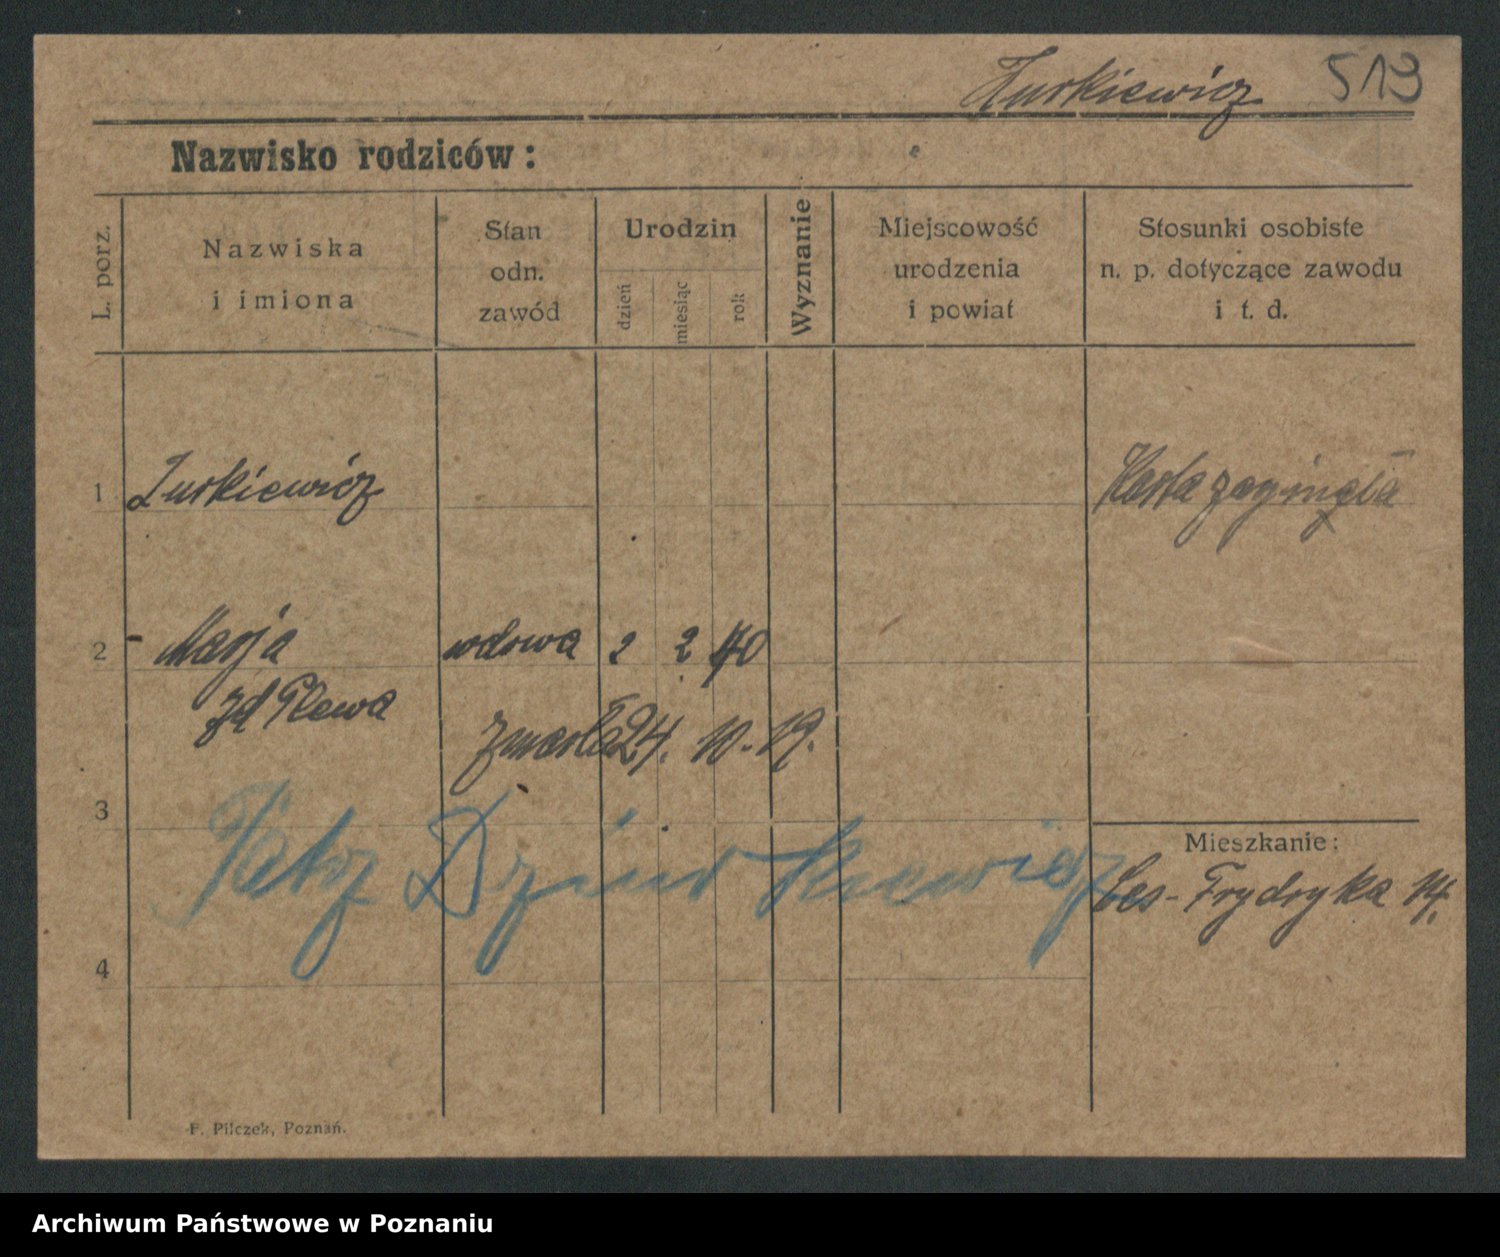 Żurkiewicz 513
Nazwisko rodziców:
L. porz.
Nazwiska
i imiona
Stan
odn.
zawód
Urodzin
dzień
miesiąc
rok
Wyznanie
Miejscowość
urodzenia
i powiat
Stosunki osobiste
n. p. dotyczące zawodu
i t. d.
1 Żurkiewicz Karta zaginęła
2 - Marja wdowa 2 2 40
zd Plewa
zmarła 24. 10. 19.
3
Patrz Dziurkiewicz
Mieszkanie:
Ces-Frydryka 14.
4
F. Pilczek, Poznań.
Archiwum Państwowe w Poznaniu